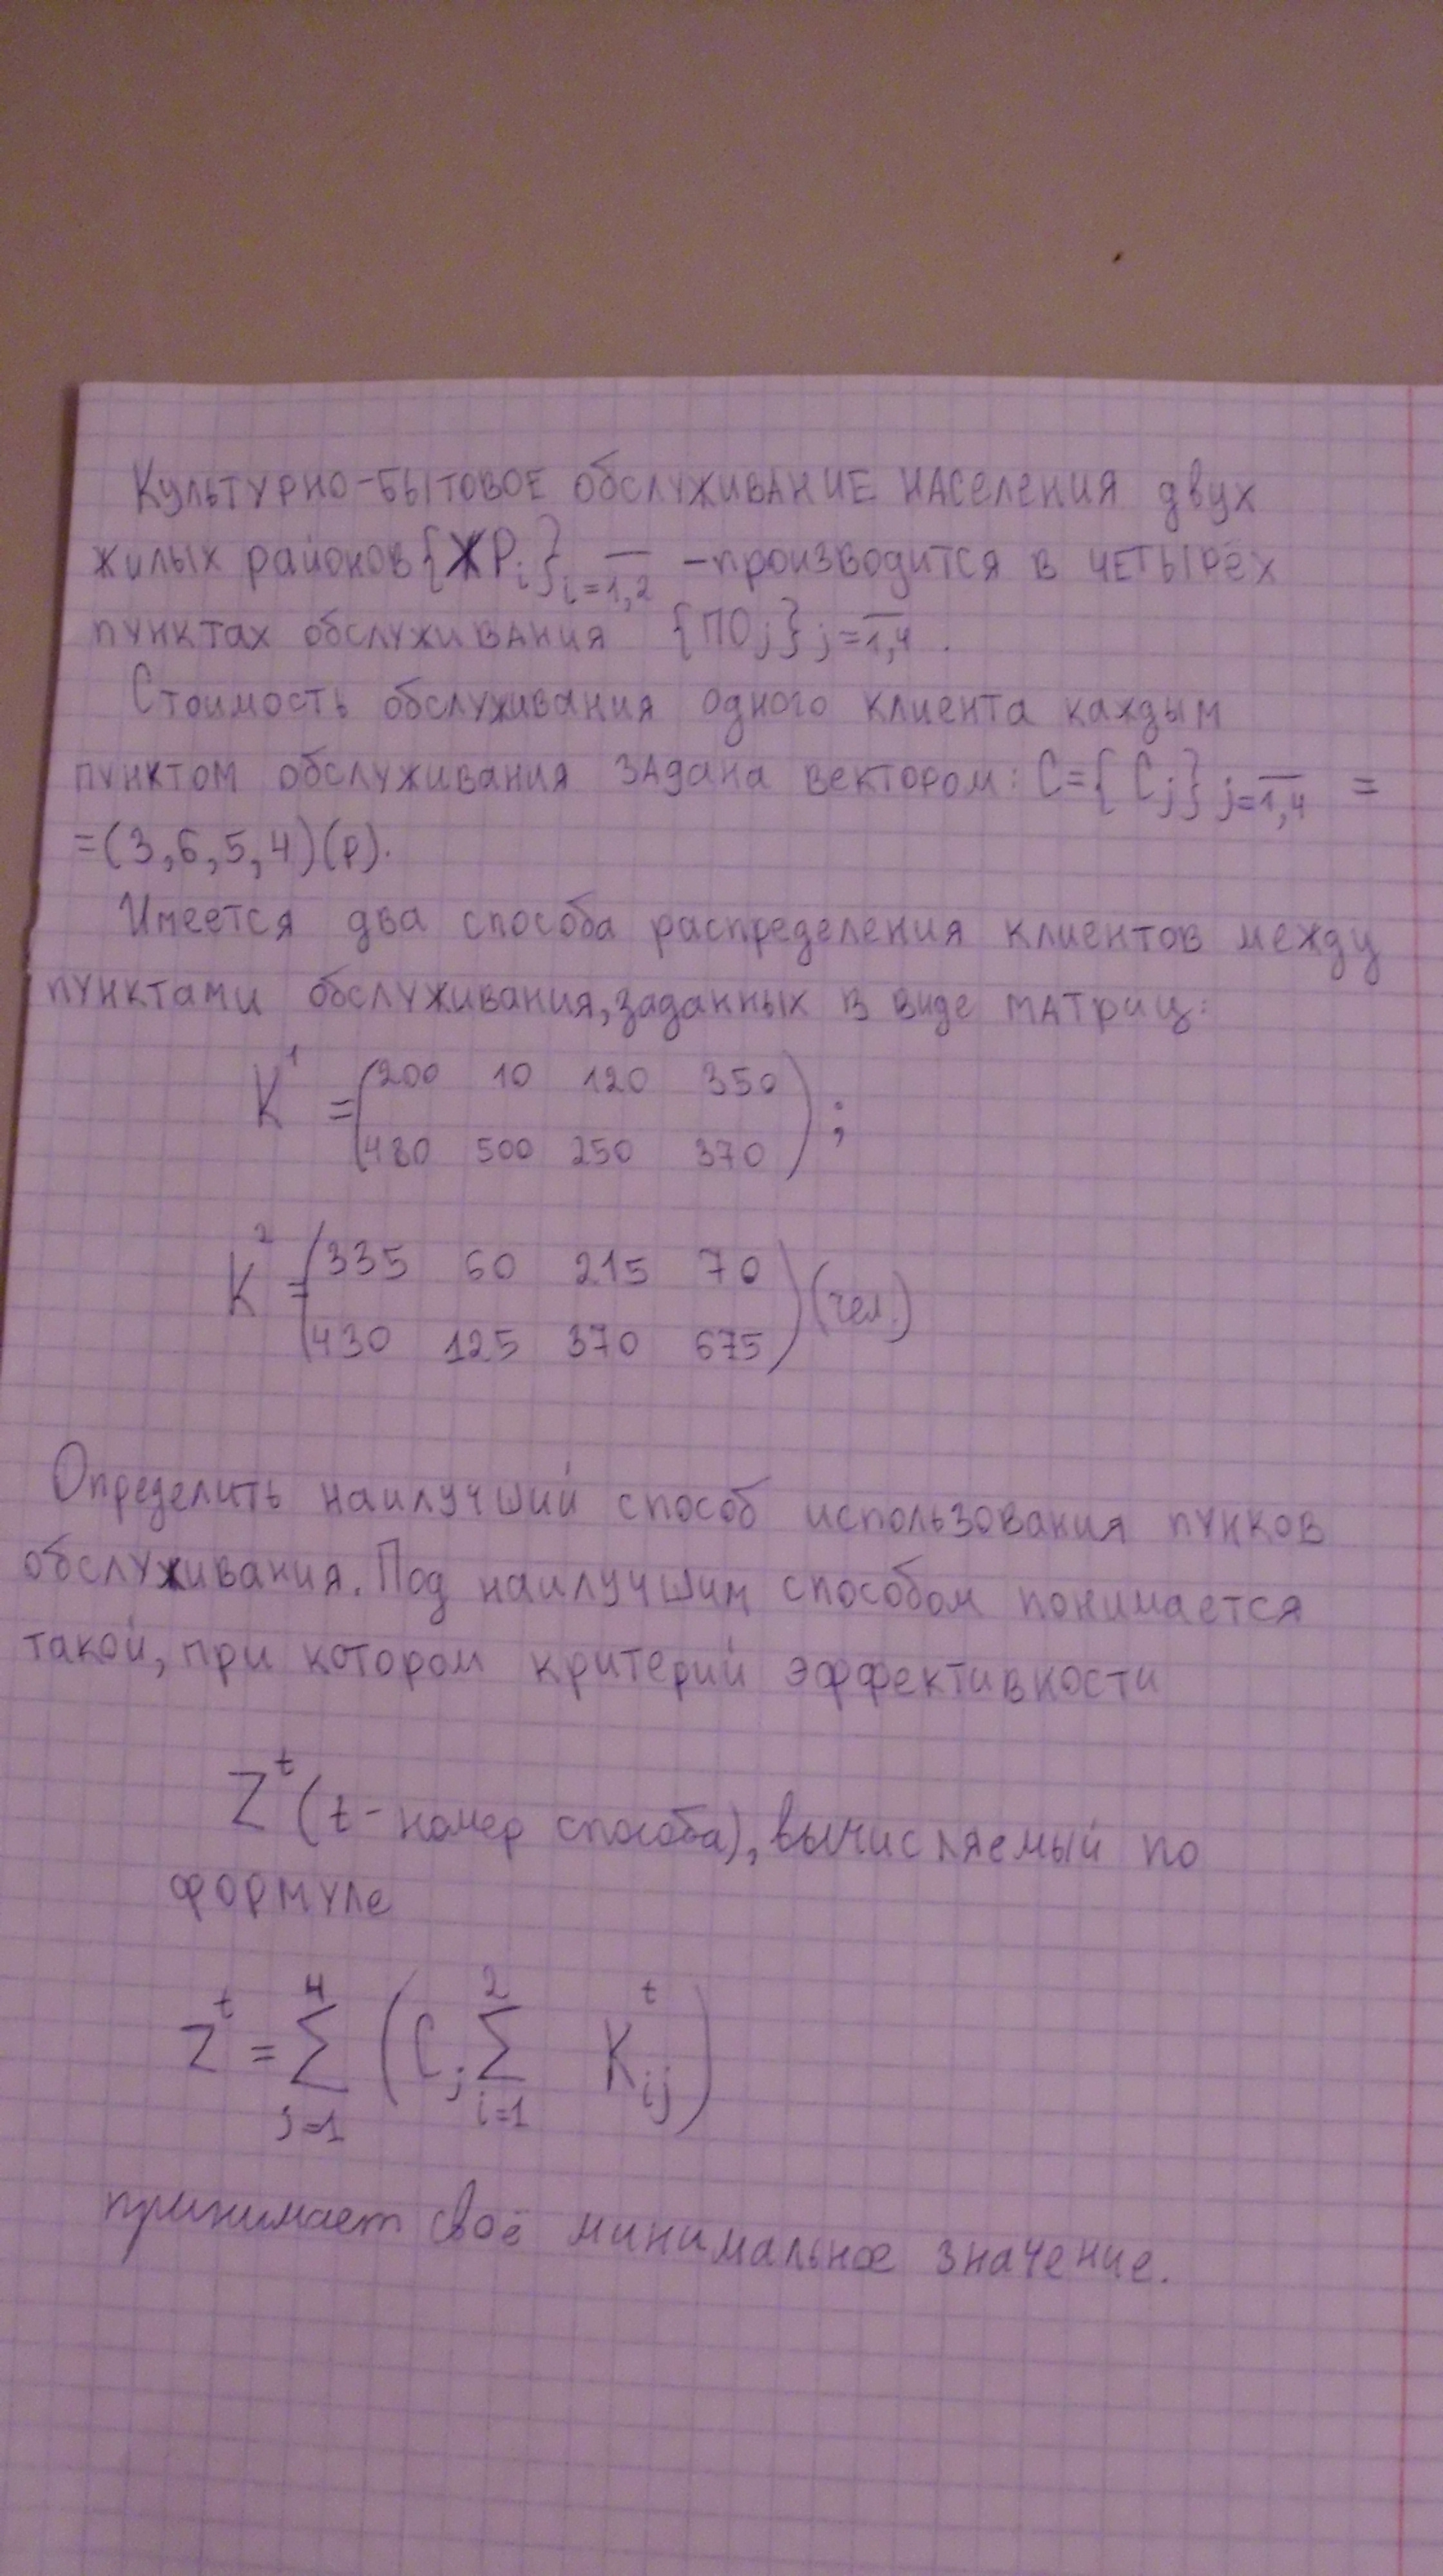 Культурно-бытовое обслуживание населения двух
жилых районов {ЖРi}i=1,2 – производится в четырёх
пунктах обслуживания {ПОj}j=1,4.
Стоимость обслуживания одного клиента каждым
пунктом обслуживания задана вектором: C={Cj}j=1,4 =
=(3,6,5,4)(р).
Имеется два способа распределения клиентов между
пунктами обслуживания, заданных в виде матриц:
K¹ = (200 10 120 350
480 500 250 370);
K² = (335 60 215 70
430 125 370 675) (чел.)
Определить наилучший способ использования пунков
обслуживания. Под наилучшим способом понимается
такой, при котором критерий эффективности
Z^t (t - номер способа), вычисляемый по
формуле
Z^t = 4∑j=1 (Cj 2∑i=1 K^t ij)
принимает своё минимальное значение.